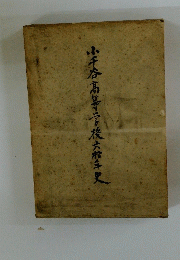 小千谷高等学校六十年史